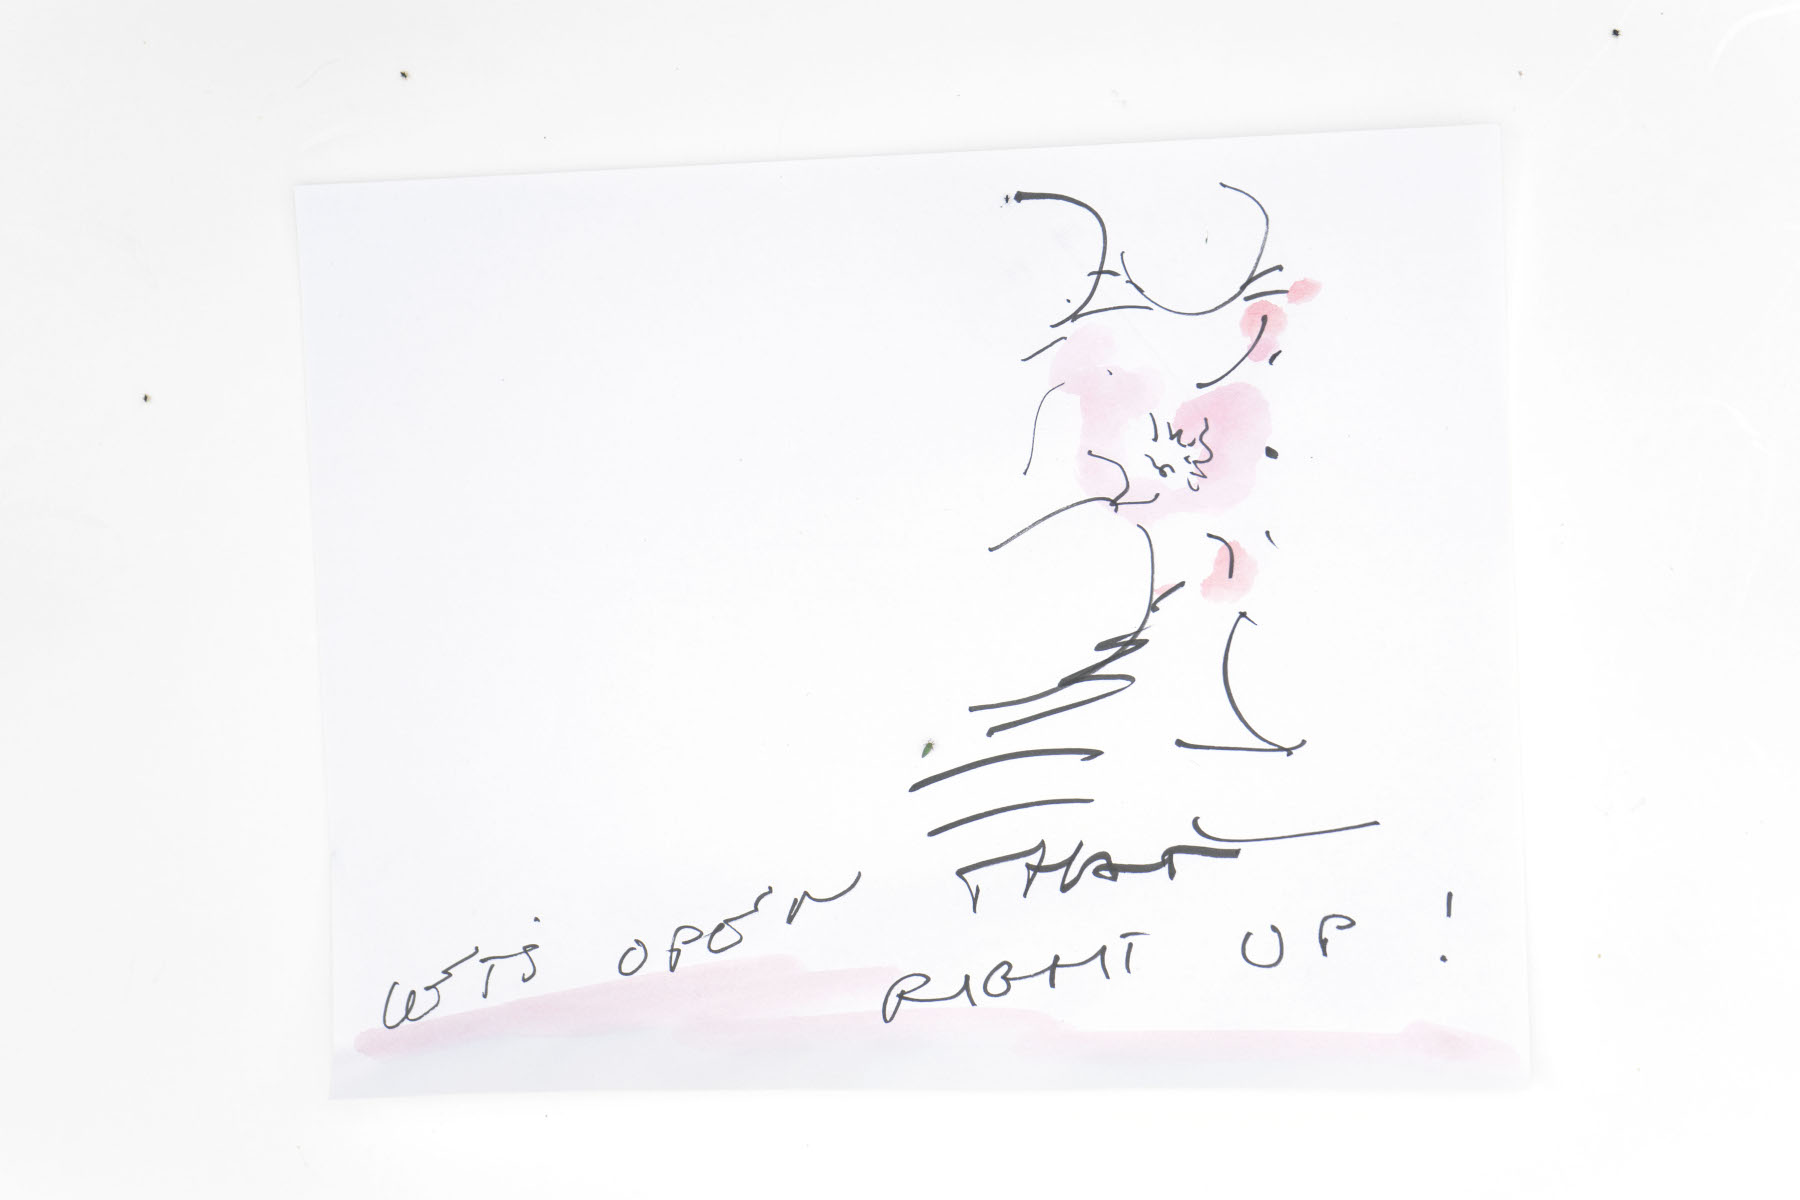 LET'S OPEN THAT
RIGHT UP !